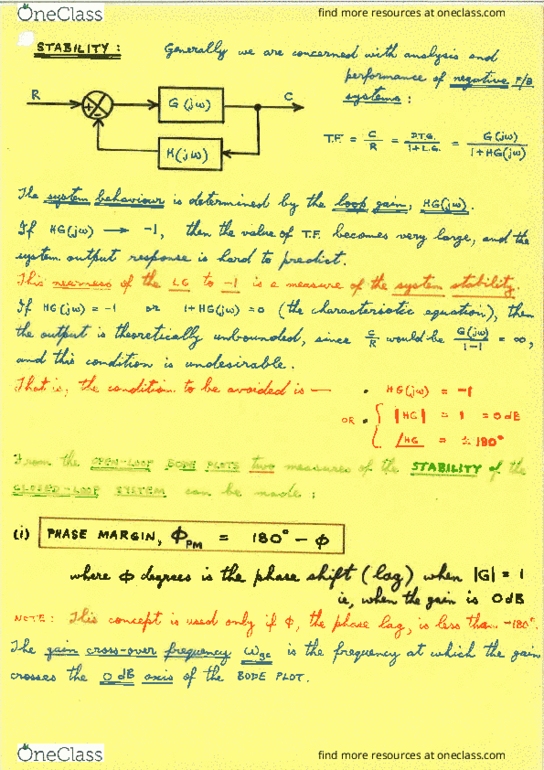 OneClass
find more resources at oneclass.com
STABILITY :
Generally we are concerned with analysis and
performance of negative F/B
systems :
R
+
-
G(jω)
C
H(jω)
T.F. = C/R = D.T.G./1+L.G. = G(jω)/1+HG(jω)
The system behaviour is determined by the loop gain, HG(jω).
If HG(jω) → -1, then the value of T.F. becomes very large, and the
system output response is hard to predict.
This nearness of the LG to -1 is a measure of the system stability.
If HG(jω) = -1 or 1+HG(jω) = 0 (the characteristic equation), then
the output is theoretically unbounded, since C/R would be G(jω)/1-1 = ∞,
and this condition is undesirable.
That is, the condition to be avoided is — • HG(jω) = -1
OR • { |HG| = 1 = 0dB
∠HG = ± 180°
From the OPEN-LOOP BODE PLOTS two measures of the STABILITY of the
CLOSED-LOOP SYSTEM can be made :
(i) PHASE MARGIN, Φ_PM = 180° - φ
where φ degrees is the phase shift (lag) when |G| = 1
ie, when the gain is 0dB
NOTE: This concept is used only if φ, the phase lag, is less than -180°.
The gain cross-over frequency ω_gc is the frequency at which the gain
crosses the 0 dB axis of the BODE PLOT.
OneClass
find more resources at oneclass.com